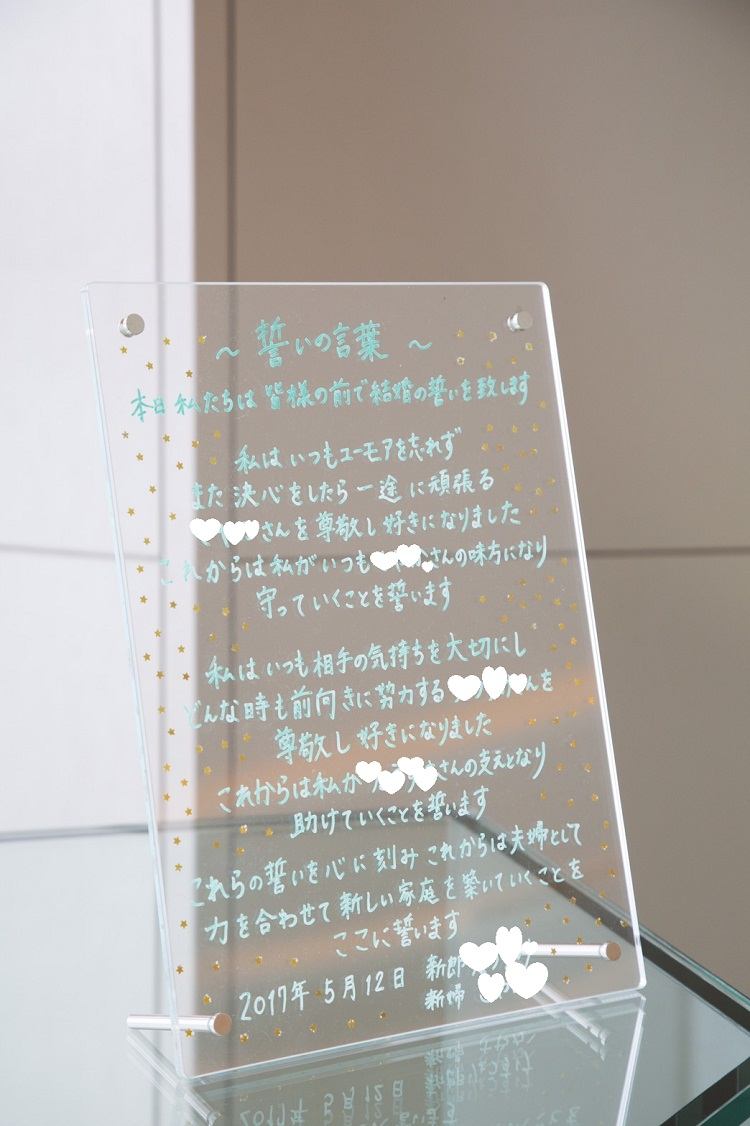 ～ 誓いの言葉 ～
本日私たちは皆様の前で結婚の誓いを致します
私はいつもユーモアを忘れず
また決心をしたら一途に頑張る
さんを尊敬し好きになりました
これからは私がいつも さんの味方になり
守っていくことを誓います
私はいつも相手の気持ちを大切にし
どんな時も前向きに努力する んを
尊敬し好きになりました
これからは私が さんの支えとなり
助けていくことを誓います
これらの誓いを心に刻みこれからは夫婦として
力を合わせて新しい家庭を築いていくことを
ここに誓います
2017年5月12日 新郎
新婦